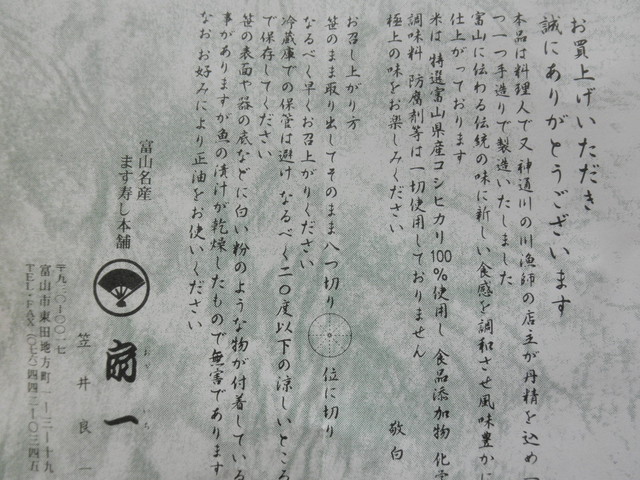 お買上げいただき
誠にありがとうございます
本品は料理人で又神通川の川漁師の店主が丹精を込め一
つ一つ手造りで製造いたしました
富山に伝わる伝統の味に新しい食感を調和させ風味豊かに
仕上がっております
米は 特選富山県産コシヒカリ100%使用し 食品添加物 化学
調味料 防腐剤等は一切使用しておりません
極上の味をお楽しみください
敬白
お召し上がり方
笹のまま取り出してそのまま八つ切り 位に切り
なるべく早くお召上がりください
冷蔵庫での保管は避け なるべく二〇度以下の涼しいところ
で保存してください
笹の表面や器の底などに白い粉のような物が付着している
事がありますが魚の漬汁が乾燥したもので無害であります
なお お好みにより正油をお使いください
富山名産
ます寿し本舗
扇一
おうぎ いち
笠井良一
〒九三〇-〇〇一七
富山市東田地方町一-三-十九
TEL・FAX(〇七六)四四二-〇三四五